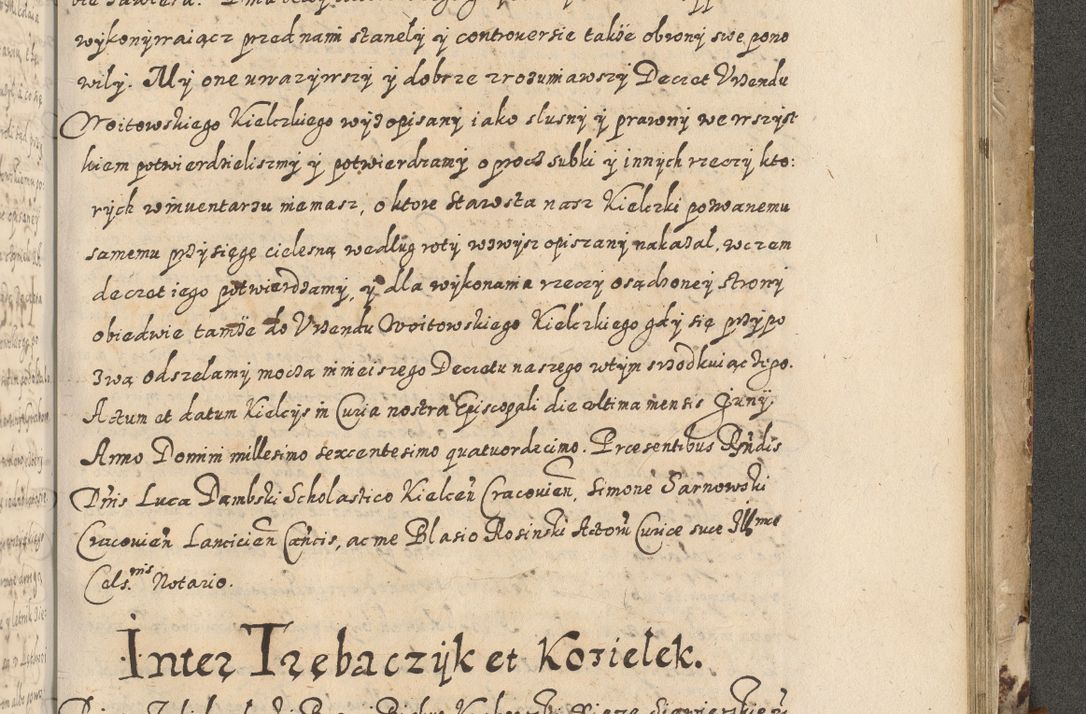 wykonywaiącz przed nami stanely y controversie takze obrony swe pono
wily. My one uwazywszy y dobrze zrozumiawszy Decret Urzendu
Woitowskiego Kielczkiego wyzopisany iako slusny y prawny we wszyst
kiem potwierdzielismy y potwierdzamy oprocz subki y innych rzeczy kto:
rych w inventarzu niemasz, o ktore Starosta nasz Kielczki pozwanemu
samemu przysięgę cielesną według roty wzwysz opiszany nakazal, w czem
decret iego potwierdzamy, y dla wykonania rzeczy osądzoney strony
obiedwie tamze do Urzendu Woitowskiego Kielczkiego gdy się przypo
zwą odszelamy moczą ninieiszego Decretu naszego w tym srzodkuiączego.
Actum et datum Kielcys in Curia nostra Episcopali die ultima mensis Juny
Anno Domini millesimo sexcentesimo quatuordecimo. Præsentibus Rñdis
Dñis Luca Dambski Scholastico Kielceñ Cracovieñ, Simone Sarnowski
Cracovieñ Lancicieñ Cañcis, ac me Blasio Rosinski Actorũ Curiæ suæ Illmæ
Cels.nis Notario.
Inter Trębaczyk et Kozielek.